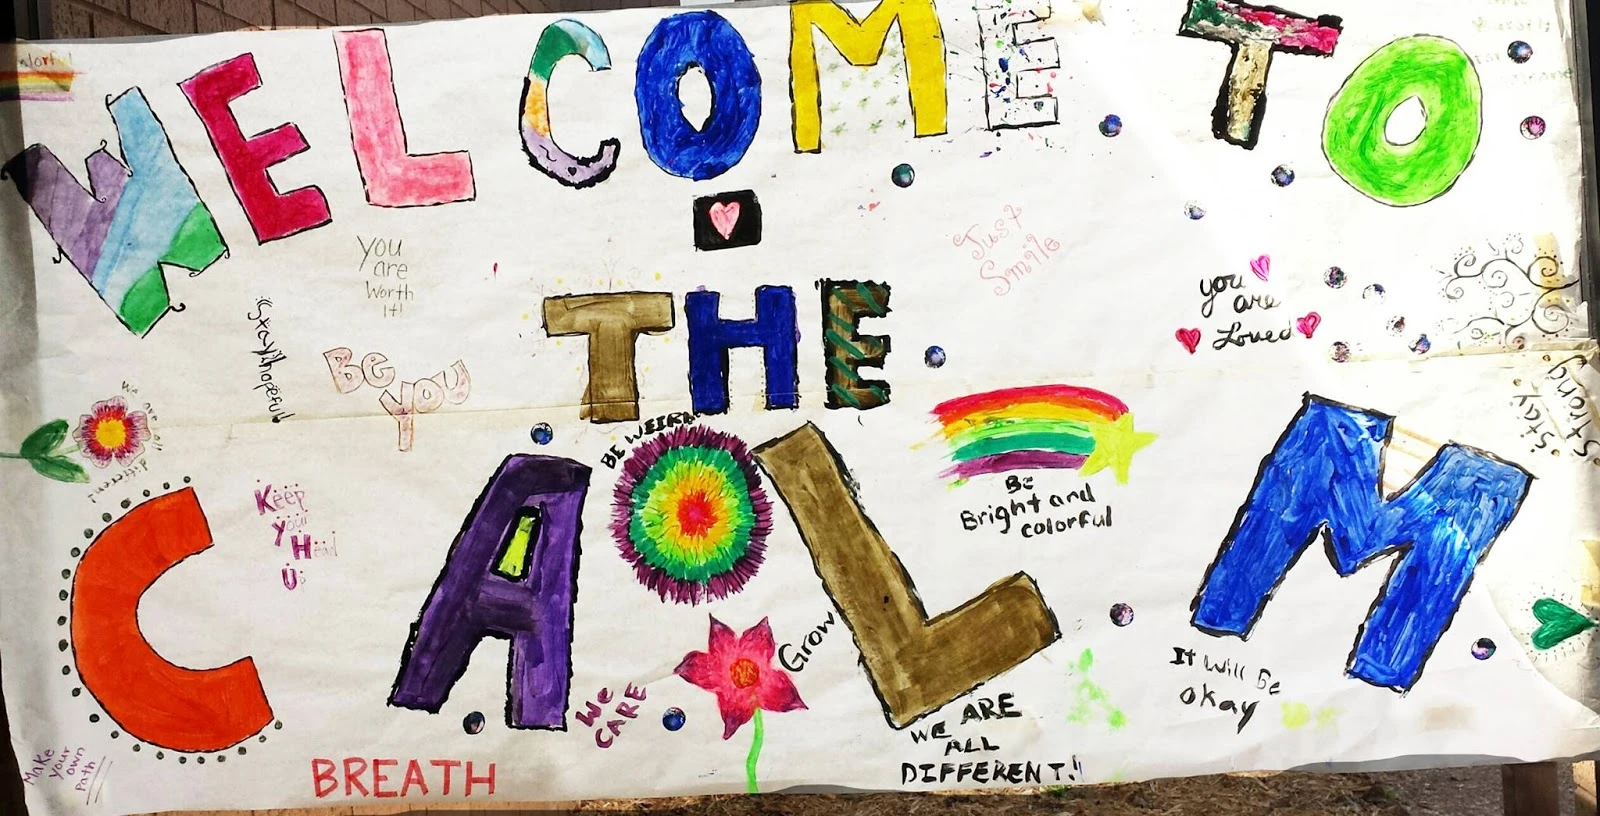 WELCOME TO
THE
CALM
You
are
Worth
it!
Just
Smile
you
are
Loved
Stay hopeful
Be
You
Stay
Strong
we are all
different
BE WEIRD
Be
Bright and
colorful
Keep
your
Head
Up
Grow
We
CARE
It will Be
okay
WE ARE
ALL
DIFFERENT!
Make
your
own
Path
BREATH